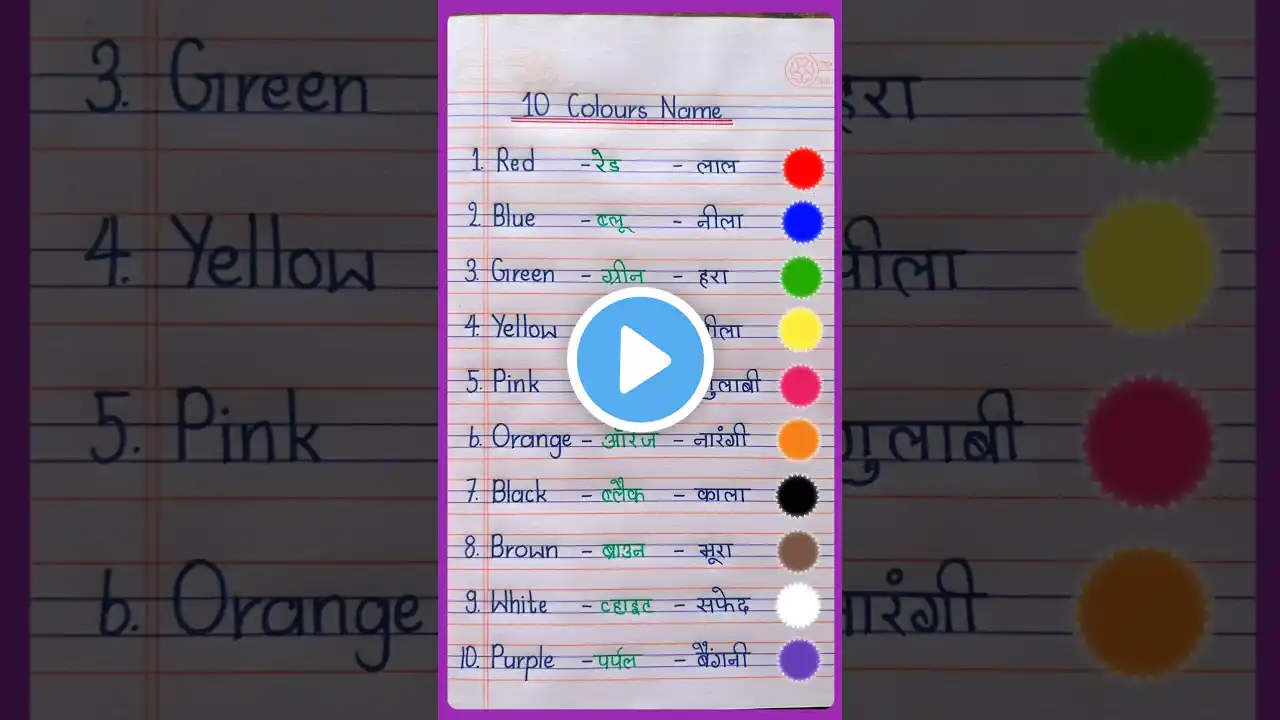 10 Colours Name
1. Red - रेड - लाल
2. Blue - ब्लू - नीला
3. Green - ग्रीन - हरा
4. Yellow
5. Pink
6. Orange - ऑरेंज - नारंगी
7. Black - ब्लैक - काला
8. Brown - ब्राउन - भूरा
9. White - व्हाइट - सफेद
10. Purple - पर्पल - बैंगनी
3. Green
हरा
4. Yellow
पीला
5. Pink
गुलाबी
6. Orange